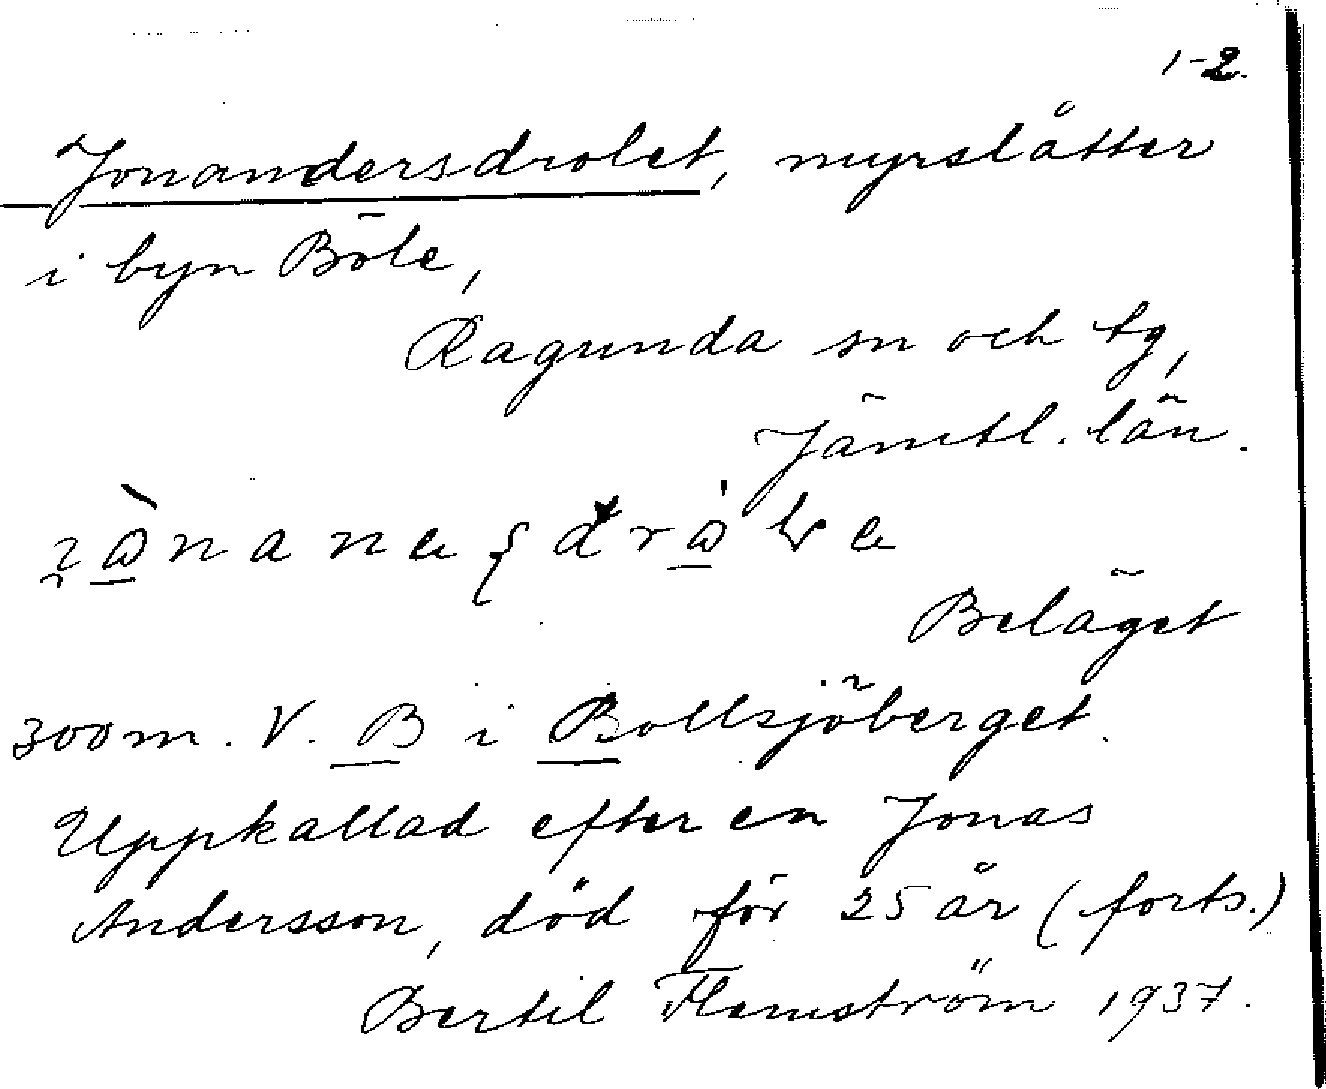 1-2.
Jonandersdrolet, myrslåtter
i byn Böle,
Ragunda sn och tg,
Jämtl. län.
Beläget
300 m. V. B i Bollsjöberget.
Uppkallad efter en Jonas
Andersson, död för 25 år (forts.)
Bertil Flemström 1937.